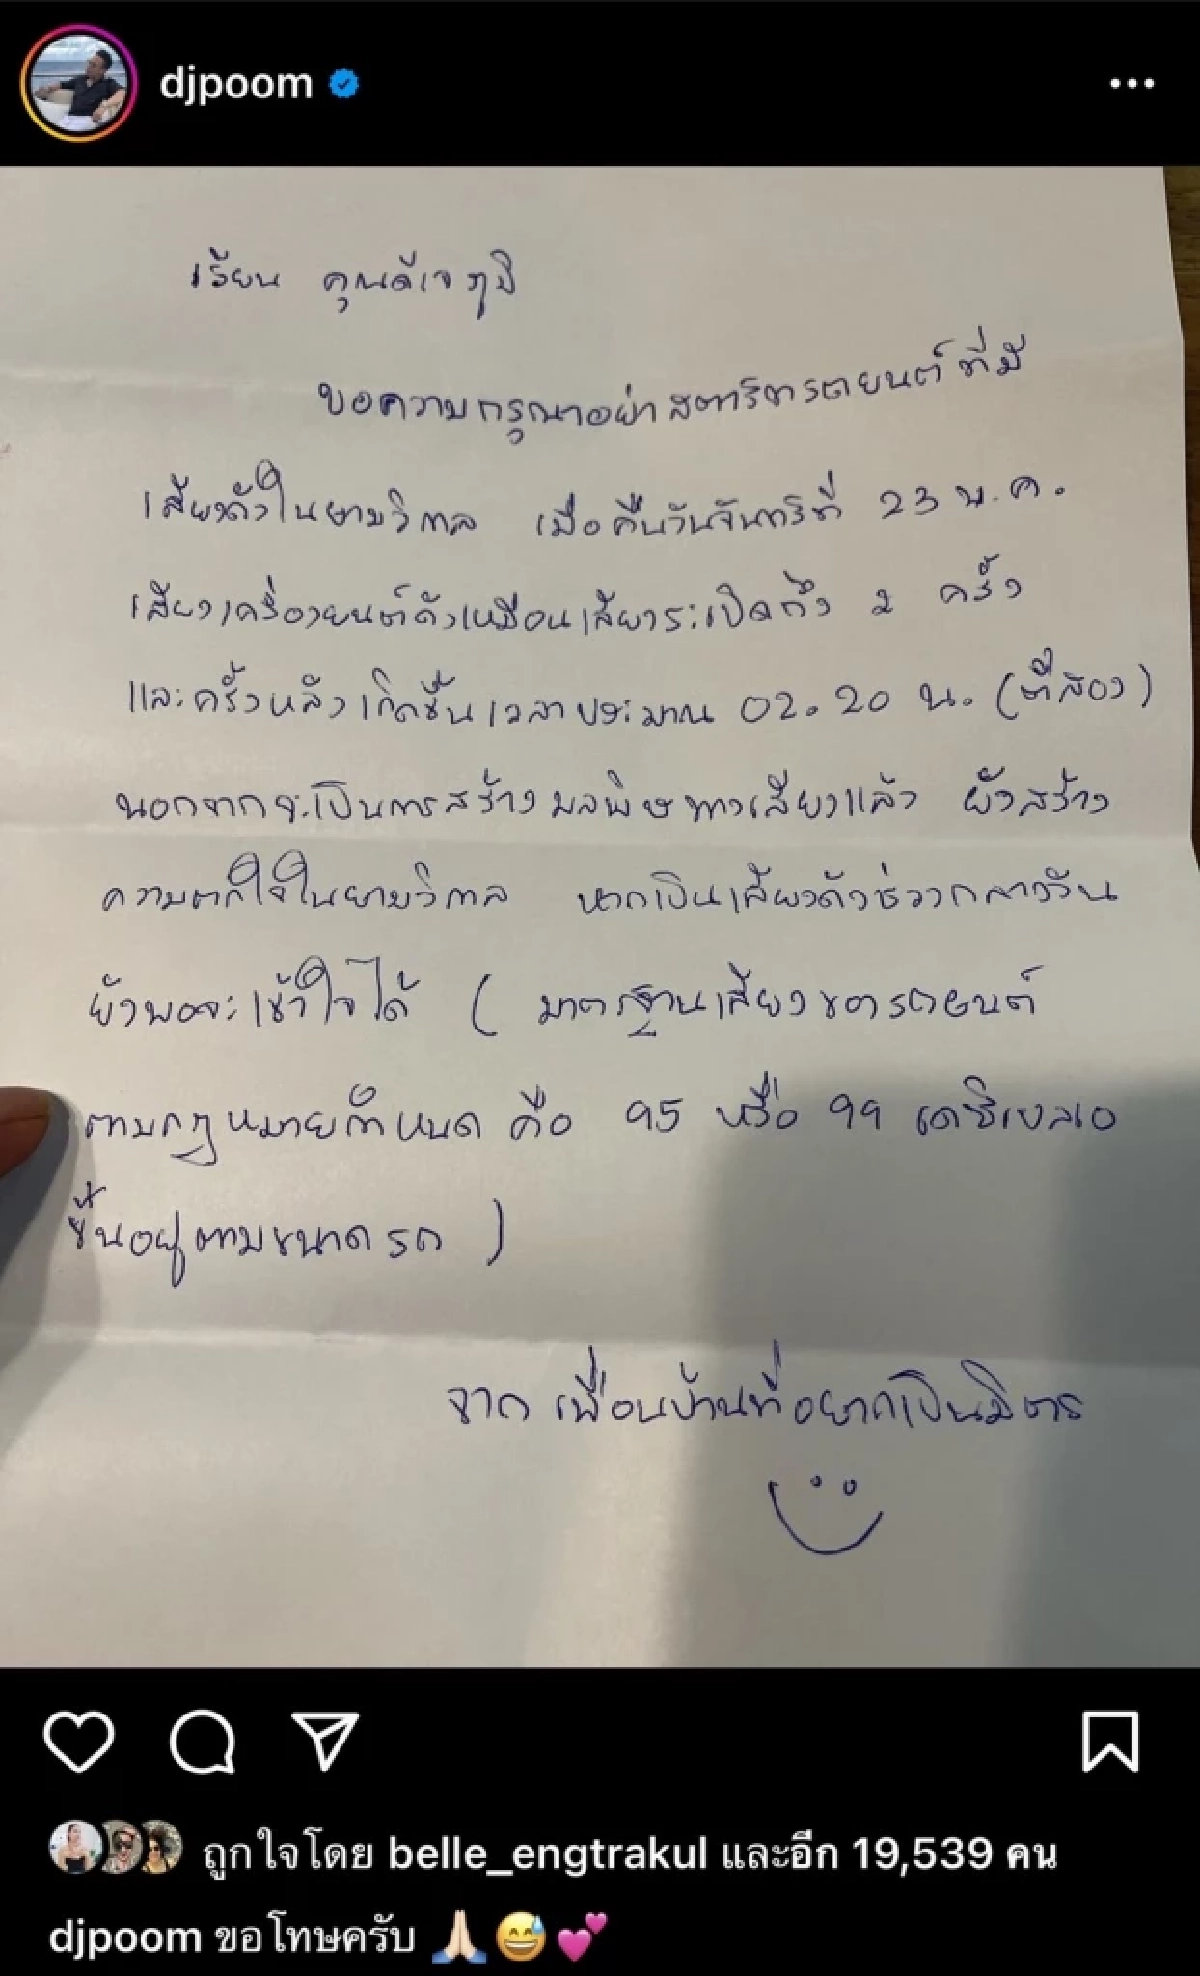 djpoom
เรียน คุณดีเจภูมิ
ขอความกรุณาอย่าสตาร์ทรถยนต์ที่มี
เสียงดังในยามวิกาล เมื่อคืนวันจันทร์ที่ 23 พ.ค.
เสียงเครื่องยนต์ดังเหมือนเสียงระเบิดถึง 2 ครั้ง
และครั้งหลังเกิดขึ้นเวลาประมาณ 02.20 น. (ตีสอง)
นอกจากจะเป็นการสร้างมลพิษทางเสียงแล้ว ยังสร้าง
ความตกใจในยามวิกาล หากเป็นเสียงดังช่วงกลางวัน
ยังพอจะเข้าใจได้ ( มาตรฐานเสียงของรถยนต์
ตามกฎหมายกำหนด คือ 95 หรือ 99 เดซิเบลเอ
ขึ้นอยู่ตามขนาดรถ )
จาก เพื่อนบ้านที่อยากเป็นมิตร
ถูกใจโดย belle_engtrakul และอีก 19,539 คน
djpoom ขอโทษครับ 🙏🏻😅💕